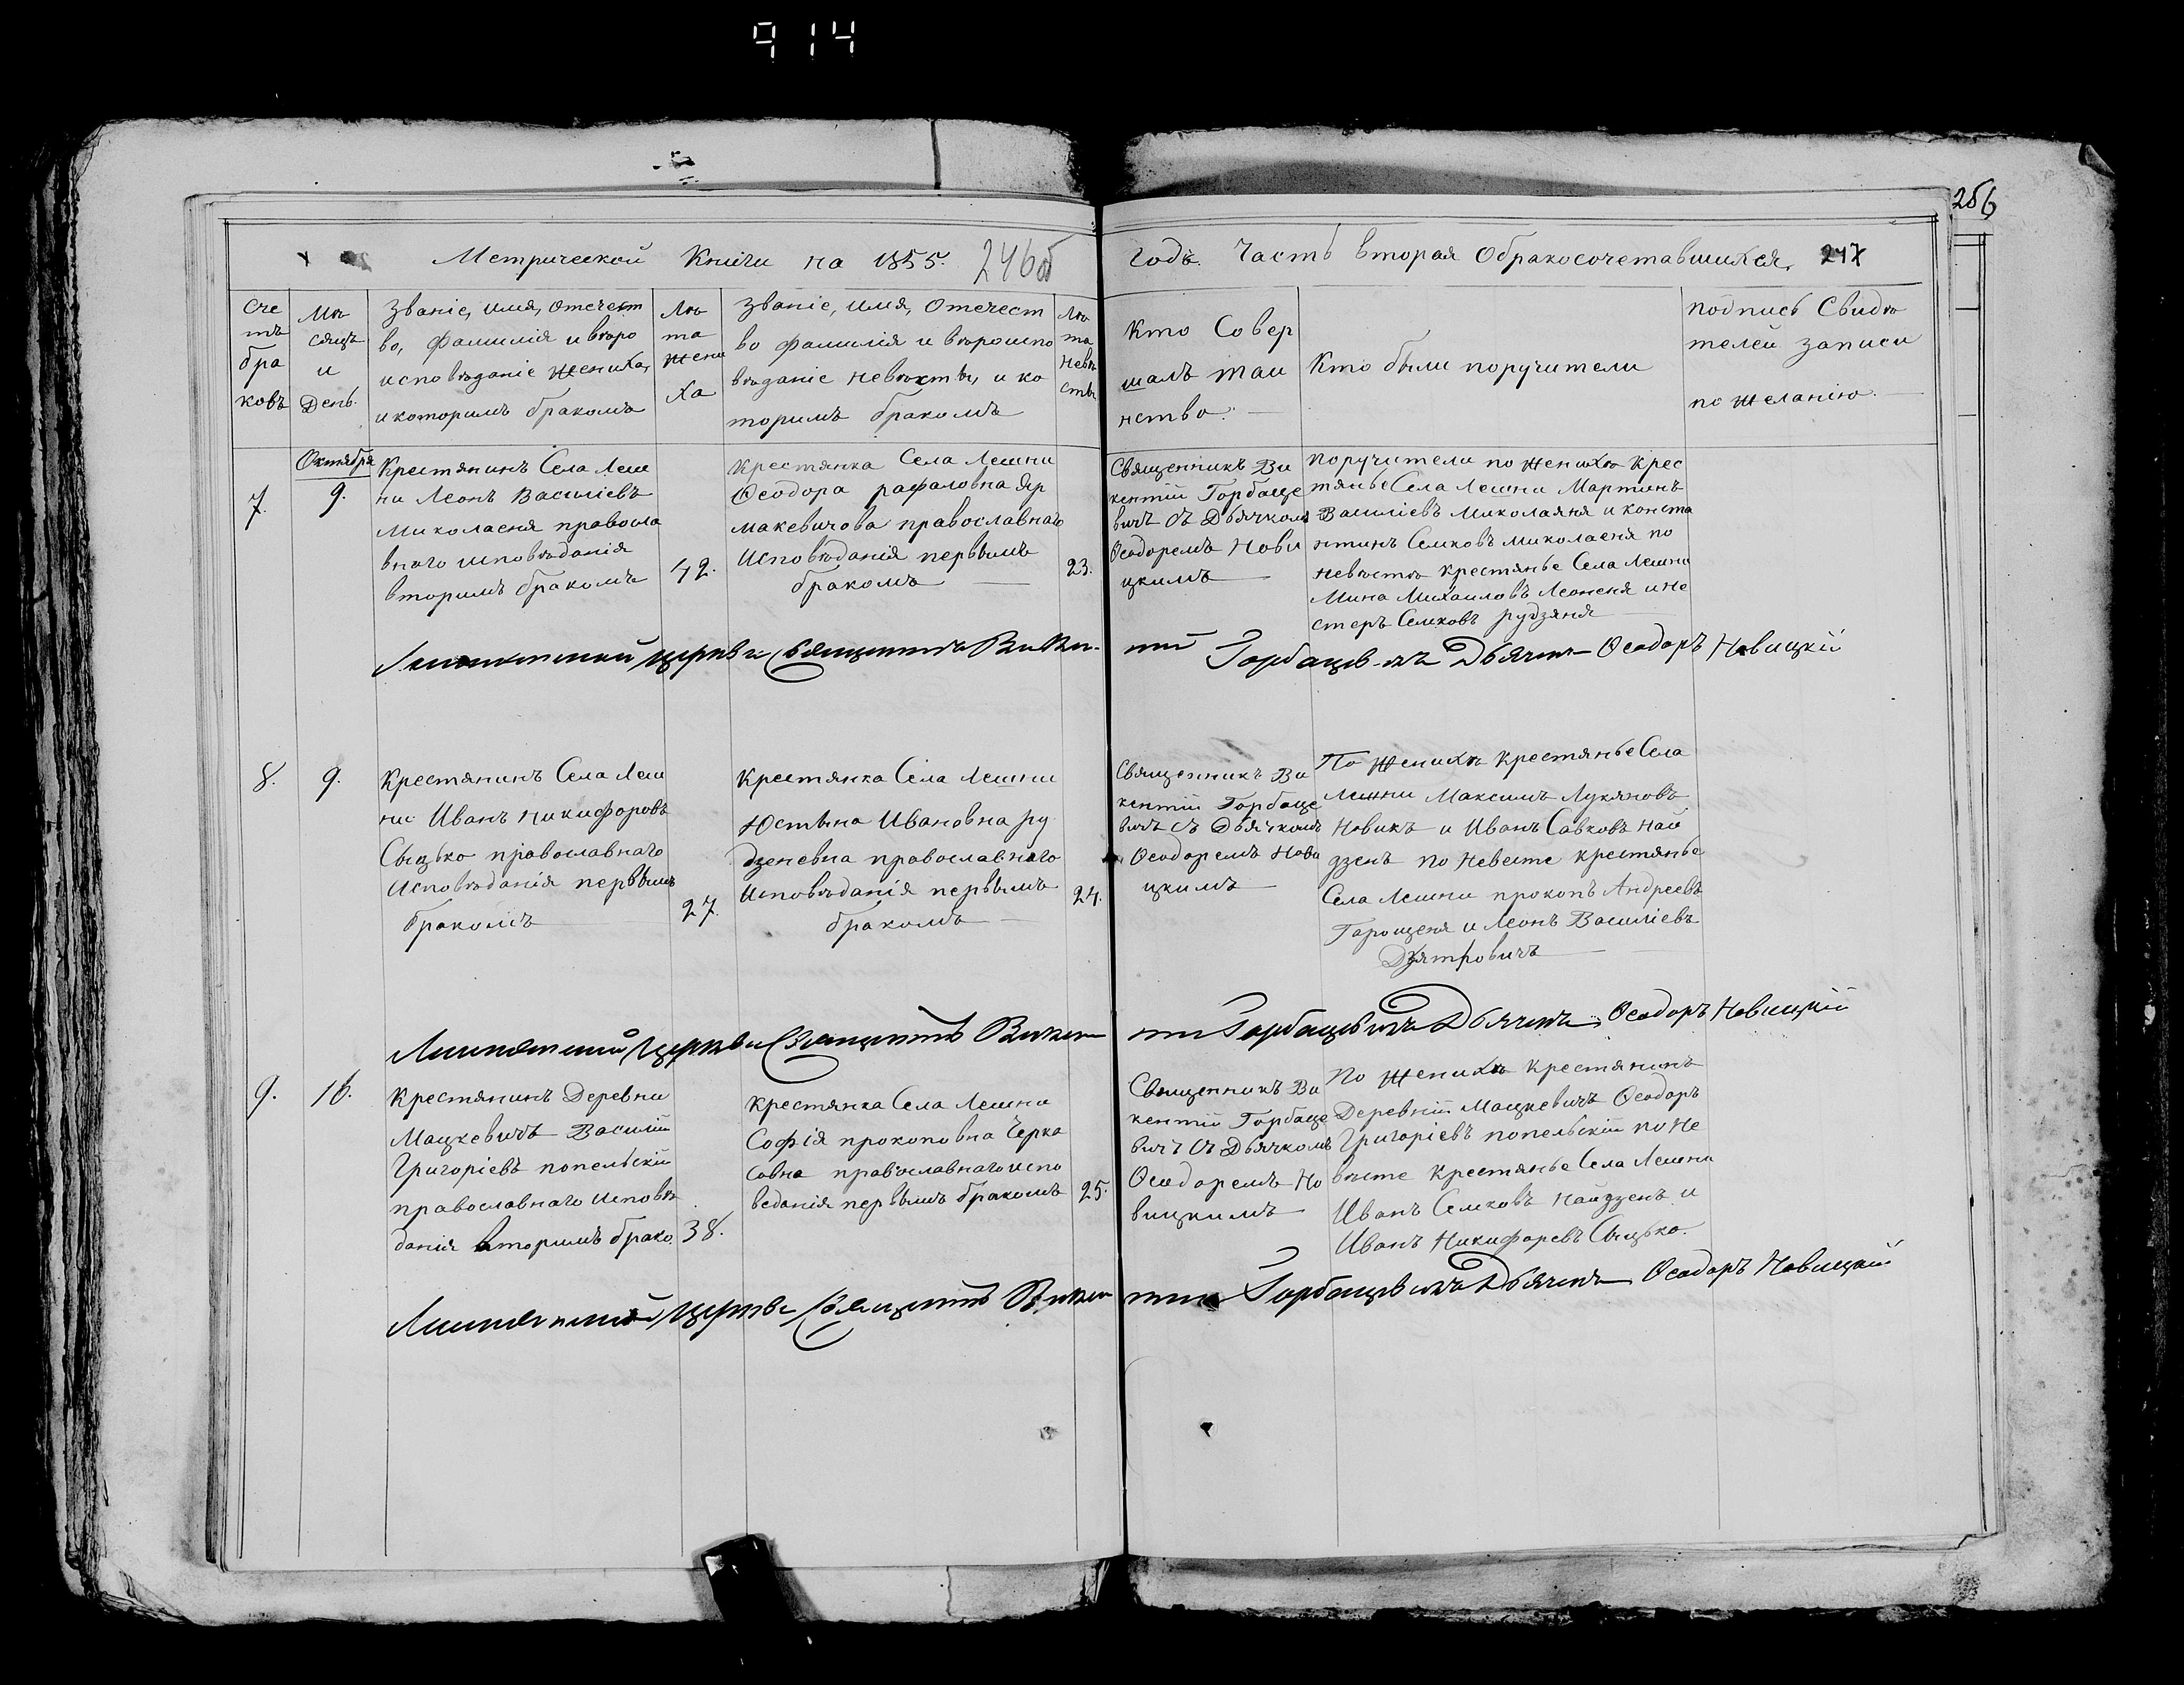 914
256
Метрической Книги на 1855. 246об
Годъ. Часть вторая Обракосочетавшихся. 247
Сче
тъ
бра
ковъ
Мѣ
сяцъ
и
День.
Званіе, имя, отечест
во, фамилія и вѣро
исповѣданіе жениха,
и которимъ бракомъ
Лѣ
та
жени
ха
Званіе, имя, Отечест
во фамилія и вѣроиспо
вѣданіе невѣсты, и ко
торимъ бракомъ
Лѣ
та
невѣ
сты
Кто Совер
шалъ таи
нство.
Кто были поручители
подпись Свидѣ
телей записи
по желанію.
Октября
7.
9.
Крестянинъ Села Леш
ни Леонъ Василіевъ
Миколаеня правосла
внаго исповѣданія
вторимъ бракомъ
42.
Крестянка Села Лешни
Ѳеодора рафаловна Яр
макевичова православнаго
Исповѣданія первымъ
бракомъ
23.
Священникъ Ви
кентій Горбаце
вичъ съ Дьячкомъ
Ѳеодоремъ Нови
цкимъ
поручители по женихѣ Крес
тянье Села Лешни Мартинъ
Василіевъ Миколаяня и конста
нтинъ Семковъ миколаеня по
невѣстѣ крестянье Села Лешни
Мина Михаиловъ Леоненя и не
стеръ Семковъ рудзяня
церкви Священникъ Викен
тій Горбацевичъ Дьячекъ Ѳеодоръ Новицкій
8.
9.
Крестянинъ Села Леш
ни Иванъ никифоровъ
Сыцько православнаго
Исповѣданія первымъ
бракомъ
27.
Крестянка Села Лешни
Юстына Ивановна ру
дзеневна православнаго
исповѣданія первымъ
бракомъ
24.
Священникъ Ви
кентій Горбаце
вичъ съ Дьячкомъ
Ѳеодоремъ Нови
цкимъ
По женихѣ крестянье Села
Лешни Максимъ Лукяновъ
Новикъ и Иванъ Савковъ най
дзенъ по невесте крестянье
Села Лешни прокопъ Андреевъ
Гарощеня и Леонъ Василіевъ
Дзятровичъ
церкви Священникъ Викен
тій Горбацевичъ Дьячекъ Ѳеодоръ Новицкій
9.
16.
Крестянинъ Деревни
Мацкевичъ Василій
Григоріевъ попельскій
православнаго исповѣ
данія вторимъ брако
38.
Крестянка Села Лешни
Софія прокоповна Черка
совна православнаго испо
веданія первымъ бракомъ
25.
Священникъ Ви
кентій Горбаце
вичъ съ Дьячкомъ
Ѳеодоремъ Но
вицкимъ
По женихѣ крестянинъ
Деревній Мацкевичъ Ѳеодоръ
Григоріевъ попельскій по не
вѣсте крестянье Села Лешни
Иванъ Семковъ найдзенъ и
Иванъ Никифоревъ Сыцько.
церкви Священникъ Викен
тій Горбацевичъ Дьячекъ Ѳеодоръ Новицкій